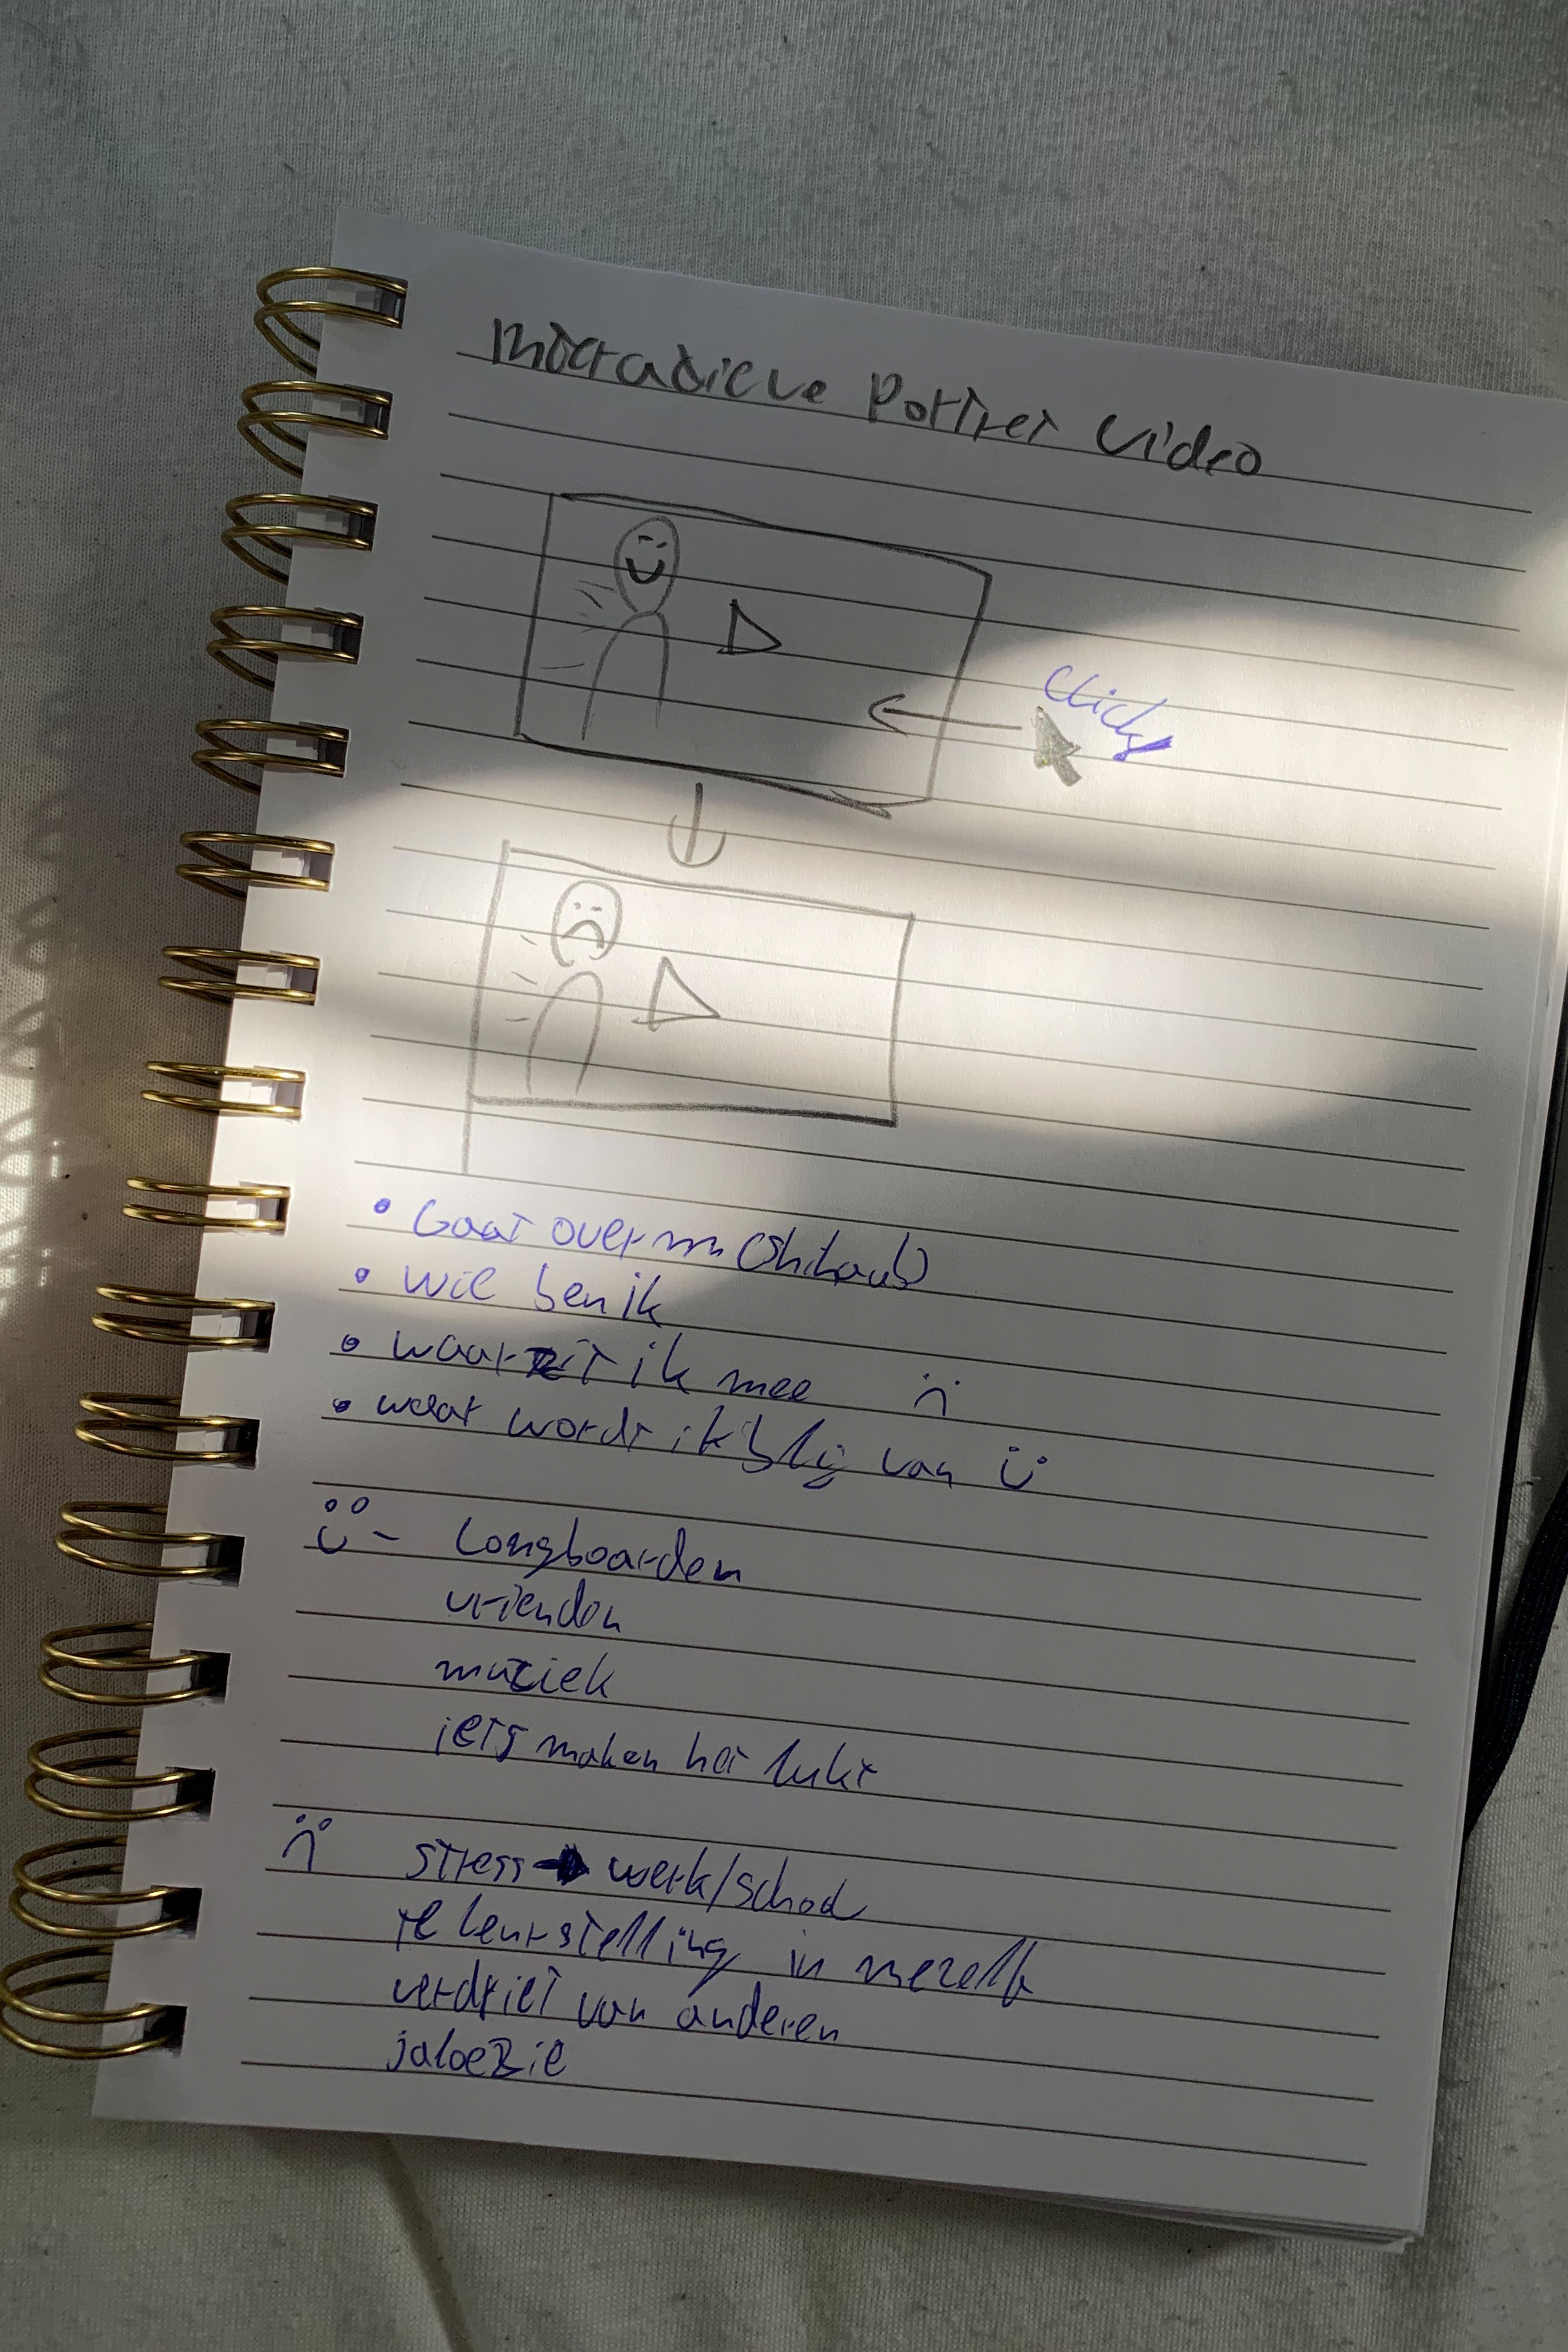 Interactieve Portret Video
Click
• Gaat over m
• wie ben ik
• waar zit ik mee :(
• waar wordt ik blij van :)
:) - Longboarden
vrienden
muziek
iets maken het lukt
:( stress → werk/school
teleurstelling in mezelf
verdriet van anderen
jaloezie